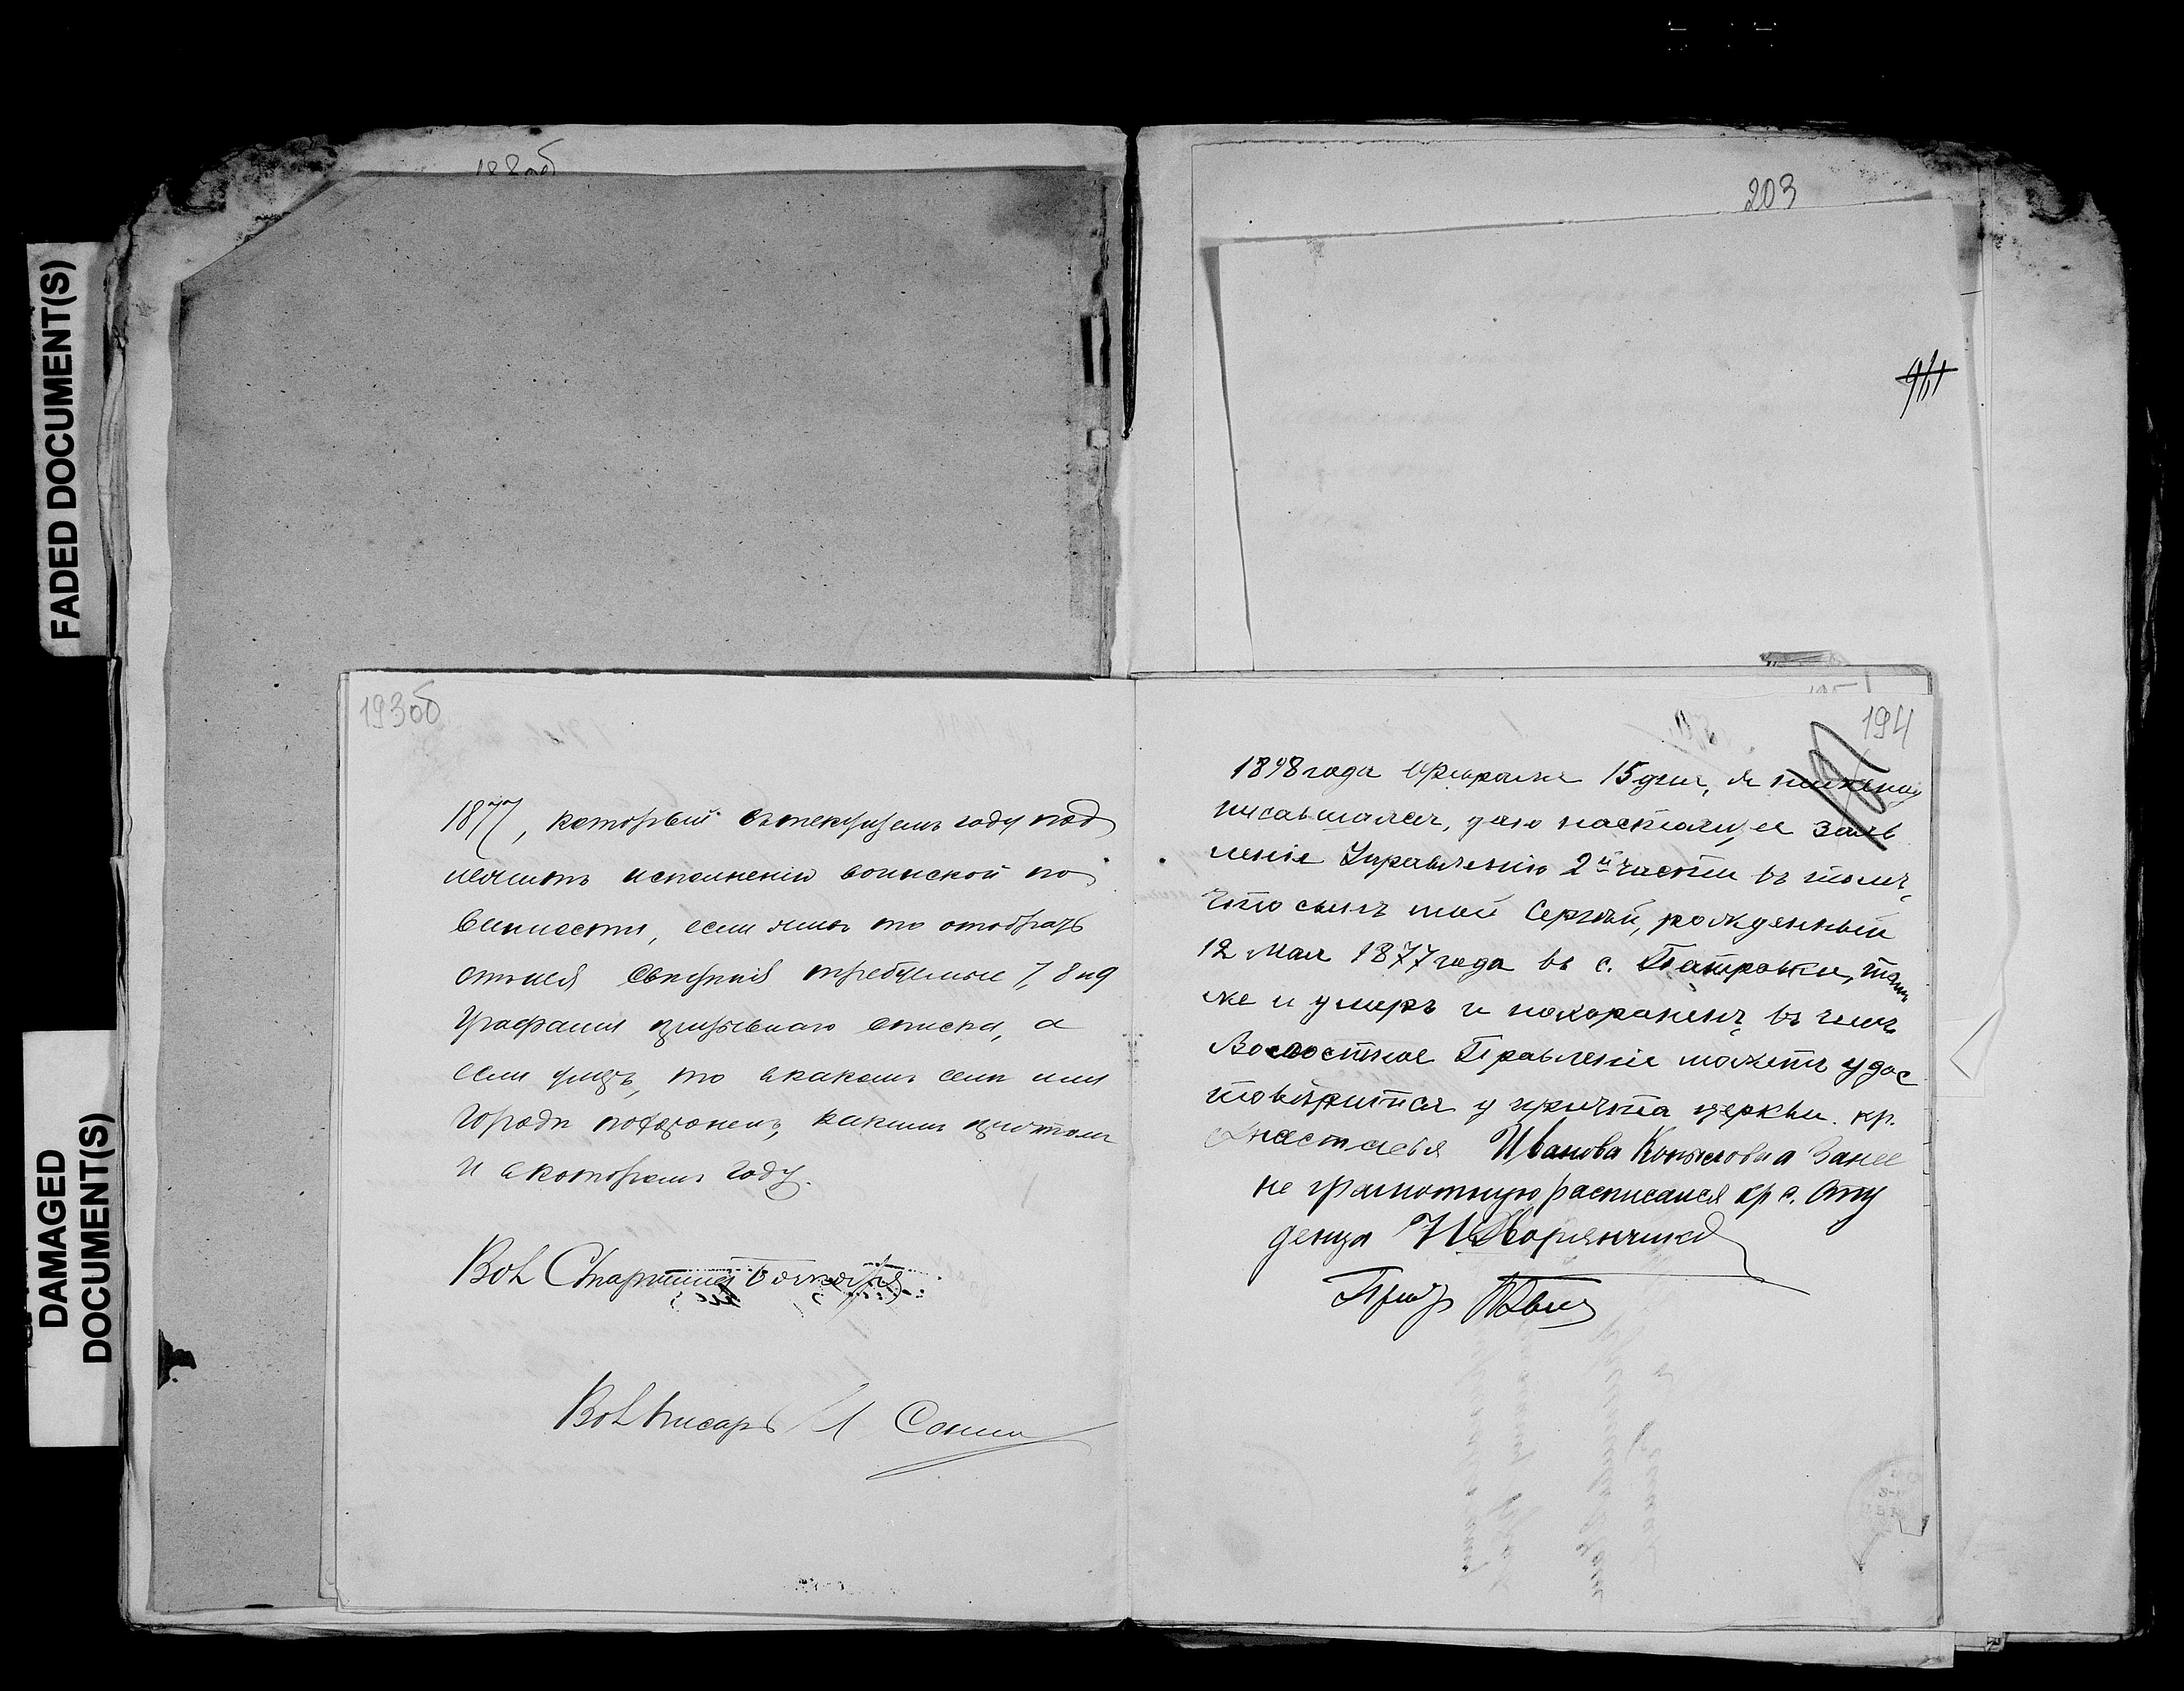 188об
203
FADED DOCUMENT(S)
DAMAGED
DOCUMENT(S)
193об
1877, который въ текущемъ году под
лежитъ исполненію воинской по
винности, если живъ то отобрать
отъ нея свѣдѣнія требуемыя 7, 8 и 9
графами призывнаго списка, а
если умеръ, то въ какомъ селѣ или
городѣ похороненъ, какимъ причтомъ
и въ которомъ году.
Вол Старшина
Вол Писарь
194
1898 года Февраля 15 дня, я нижепод
писавшаяся, даю настоящее заяв
леніе Управленію 2й части въ томъ,
что сынъ мой Сергѣй, рожденный
12 Мая 1877 года въ с. Петровки, тамъ
же и умеръ и похороненъ, въ чемъ
Волостное Правленіе можетъ удос
товѣрится у причта церкви. кр.
Анастасья Иванова За нее
не грамотную росписался кр с. Сту
денца